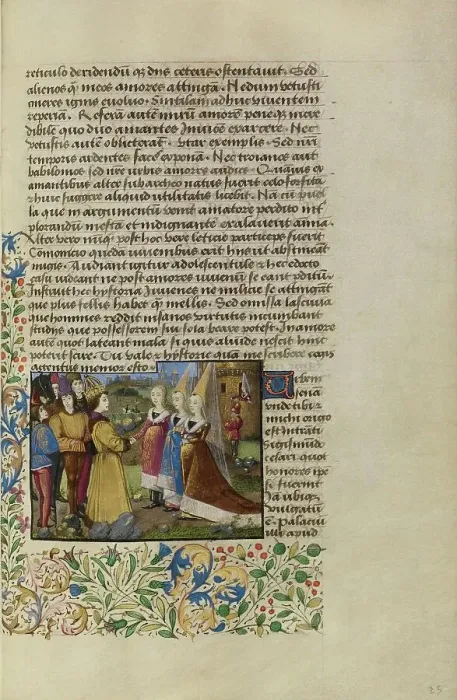 reticulo deridendū qz dn̄s ceteris ostentavit. Sed
alienos q̄ meos amores attingā. Ne dum vetusti
cineres ignis evoluo. Sintillam adhuc viventem
reperiā. Referā autē mirū amorē peneqz incre
dibile quo duo amantes Invicē exarcere. Nec
vetustis autē oblicterat. Vtar exemplis. Sed nr̄i
temporis ardentes faces exponā. Nec troianos aut
babilonios sed nr̄e urbis amores audies. Quāuis ex
amantibus alter sub archeo natus fuerit celo forsitā
& huic suggere aliquid utilitatis licebit. Nā cū puel
la que in argumentū venit amatore perdito int̄
plorandū mestā et indignante exalaverit animā.
Alter vero nūq̄ post hoc vere leticie particeps fuerit.
Comonicio quedā iuvenibus erit hiis ut abstineāt
nugis. Audiant igitur adolescentule & hoc edocto
casu videant ne post amores iuvenū se eant pditū.
Instruit hec hystoria Iuvenes ne milicie se attingāt
que plus fellis habet q̄ mellis. Sed omissa lascivia
que homines reddit insanos virtutis incumbant
studiis que possessorem sui sola beare potest. In amore
autē quot lateant mala si quis aliunde nescit hinc
poterit scire. Tu vale & hystorie quā me scribere cogis
actentus memor esto.
Urbem
senā
unde tibi &
michi origo
est Intrāti
Sigismūdo
cesari quot
honores ipe
se fuerint
Iā ubiqz
vulgatū
ē. Palaciū
illi apud
25